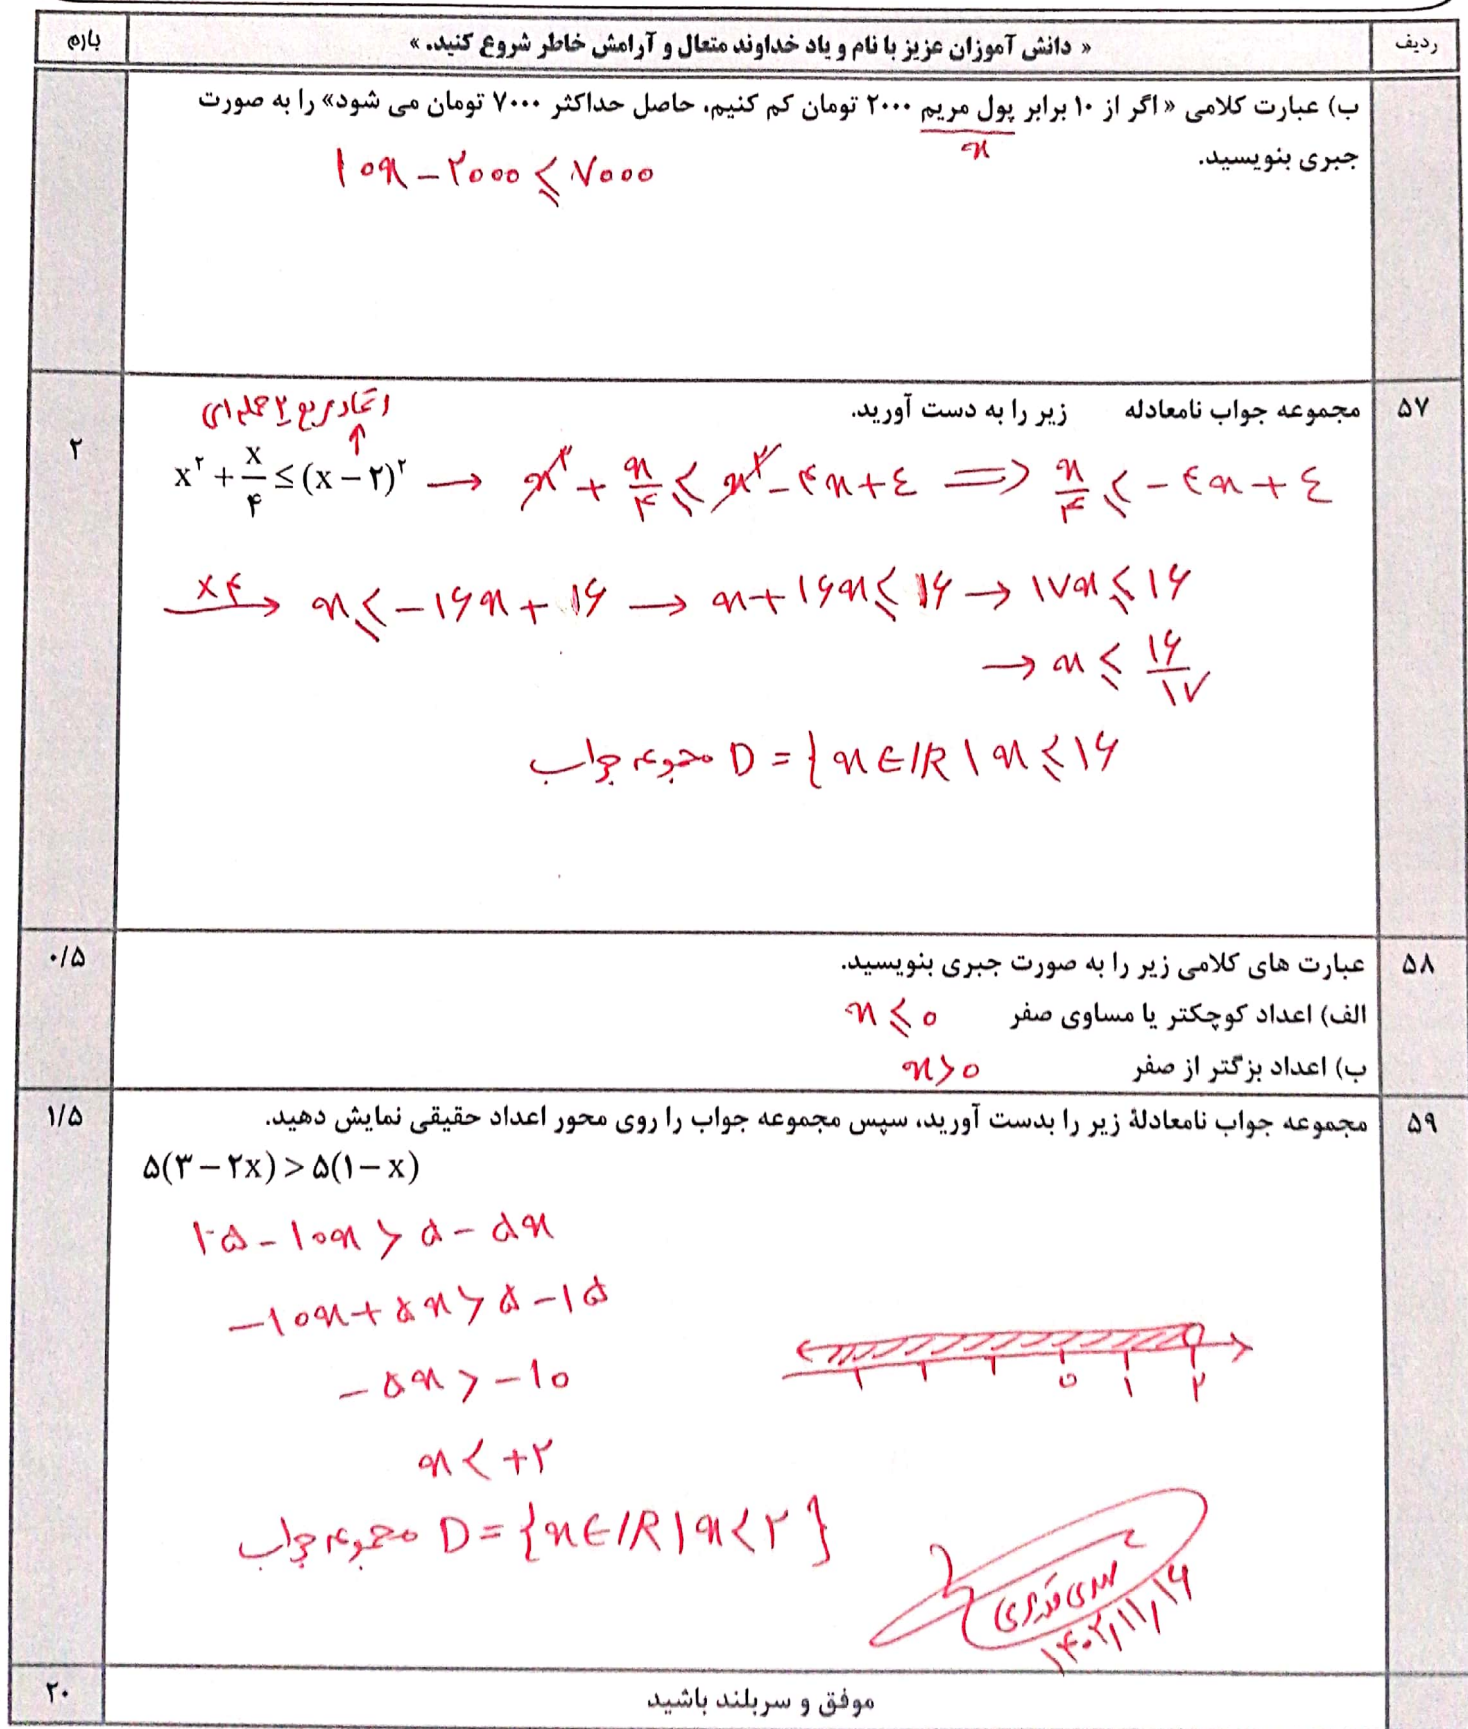 ردیف « دانش آموزان عزیز با نام و یاد خداوند متعال و آرامش خاطر شروع کنید. » بارم
ب) عبارت کلامی « اگر از ۱۰ برابر پول مریم ۲۰۰۰ تومان کم کنیم، حاصل حداکثر ۷۰۰۰ تومان می شود» را به صورت
x
جبری بنویسید.
۱۰x − ۲۰۰۰ ≤ ۷۰۰۰
۵۷ مجموعه جواب نامعادله زیر را به دست آورید. ۲
اتحاد مربع ۲ جمله ای
x^۲ + x/۴ ≤ (x − ۲)^۲ → x^۲ + x/۴ ≤ x^۲ − ۴x + ۴ ⇒ x/۴ ≤ − ۴x + ۴
×۴ → x ≤ −۱۶x + ۱۶ → x + ۱۶x ≤ ۱۶ → ۱۷x ≤ ۱۶
→ x ≤ ۱۶/۱۷
مجموعه جواب D = { x ∈ IR | x ≤ ۱۶
۵۸ عبارت های کلامی زیر را به صورت جبری بنویسید. ۰/۵
الف) اعداد کوچکتر یا مساوی صفر x ≤ ۰
ب) اعداد بزگتر از صفر x > ۰
۵۹ مجموعه جواب نامعادلهٔ زیر را بدست آورید، سپس مجموعه جواب را روی محور اعداد حقیقی نمایش دهید. ۱/۵
۵(۳ − ۲x) > ۵(۱ − x)
۱۵ − ۱۰x > ۵ − ۵x
−۱۰x + ۵x > ۵ − ۱۵
−۵x > −۱۰
۰ ۱ ۲
x < +۲
مجموعه جواب D = { x ∈ IR | x < ۲ }
۱۴۰۲/۱۱/۱۶
موفق و سربلند باشید ۲۰